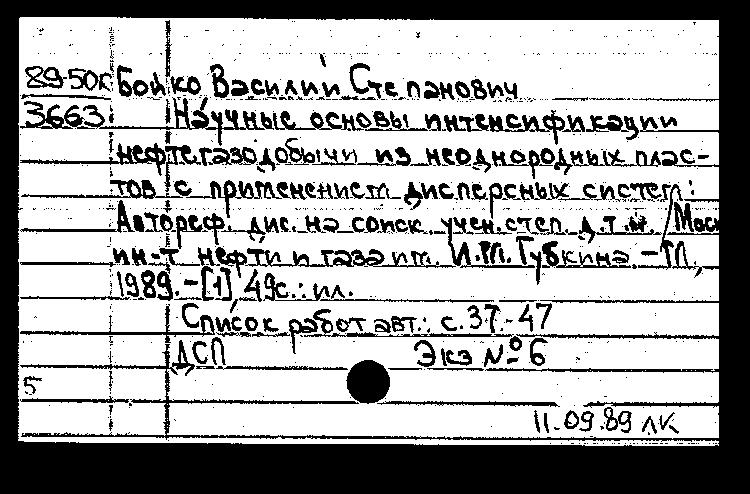 89-50к Бойко Василий Степанович
3663 Научные основы интенсификации
нефтегазодобычи из неоднородных плас-
тов с применением дисперсных систем:
Автореф. дис. на соиск. учен. степ. д.т.н. / Моск
ин-т нефти и газа им. И.М. Губкина. - М.,
1989. - [1] 49с.: ил.
Список работ авт.: с. 37-47
ДСП Экз № 6
5
11.09.89 ЛК